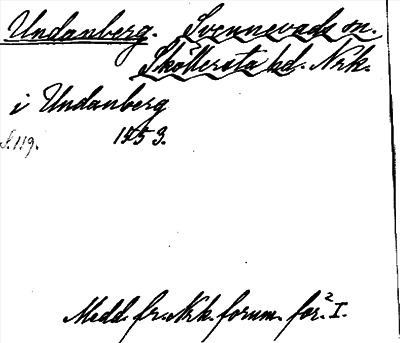 Undanberg. Svennevads sn.
Sköllersta hd. Nrk.
i Undanberg
S. 119. 1553.
Medd. fr. Nrk. fornm. för.² I.